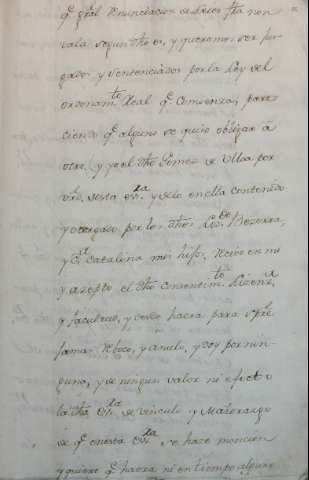 q.e gral Renunciacion de Leies fha non
vala, segun dho es, y queremos ser juz-
gados, y sentenciados por la Ley del
ordenam.to Real q.e Comienza, pare-
ciendo q.e alguno se quiso obligar à
otro, y yo el dho Gomez de Ulloa por
vtd. de esta es.ra y de lo en ella contenido
y otorgado por los dhos Liz.do Bezerra,
y D.a Catalina mis hijos, Recivo en mi
y azepto el dho Consentim.to Lizenz.a
y facultad, y desde haora para siempre
jamas Reboco, y anulo, y doy por nin-
guno, y de ningun valor ni efecto
la dha es.ra de vinculo y Maiorazgo
de q.e en esta es.ra se haze mencion
y quiero q.e haora ni en tiempo alguno